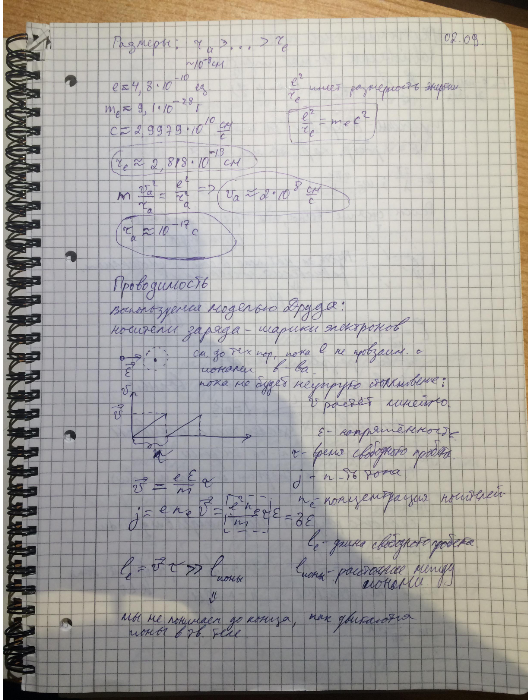 Размеры: r_a > ... > r_e
02.09
~10⁻⁸ см
e = 4,8·10⁻¹⁰ ед
m_e ≈ 9,1·10⁻²⁸ г
c = 2,9979·10¹⁰ см/с
e²/r_e имеет размерность энергии
e²/r_e = m_e c²
r_e ≈ 2,818·10⁻¹³ см
m v_a²/r_a = e²/r_a² => v_a ≈ 2·10⁸ см/с
τ_a ≈ 10⁻¹⁷ с
Проводимость
пользуемся моделью Друда:
носители заряда - шарики электронов
пор, пока e не
ионами в ва.
пока не будет неупругого
v растёт линейно.
ε - напряжённость
τ - время свободного пробега
j - п-ть тока
v = eε/m τ
n_e - концентрация носителей
j = e n_e v = [e² n_e/m] τε = ϭε
l_e - длина свободного пробега
l_e = v τ >> l_ионы
l_ионы - расстояние между
ионами
⇓
мы не понимаем до конца, как движутся
ионы в тв. теле